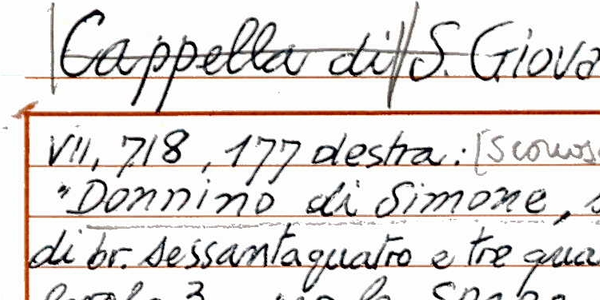 Cappella di S. Giova
VII, 718, 177 destra: [Sconos
"Donnino di Simone,
di br. sessantaquatro e tre qua